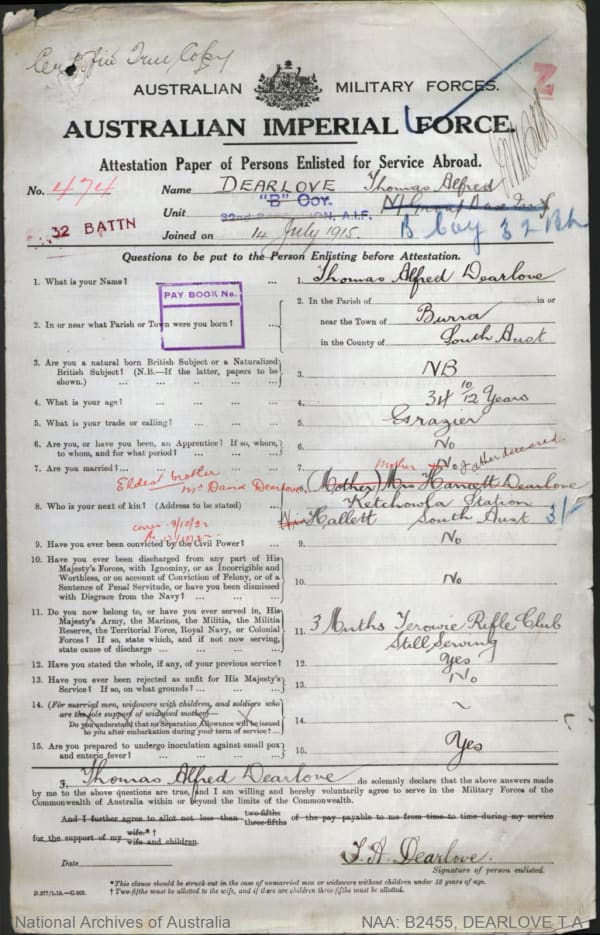 Certified True Copy
AUSTRALIAN MILITARY FORCES.
AUSTRALIAN IMPERIAL FORCE.
Attestation Paper of Persons Enlisted for Service Abroad.
No. 474 Name DEARLOVE Thomas Alfred
"B" COY.
32 BATTN Unit 32nd BATTALION, A.I.F. B Coy 32 Bn
Joined on 14 July 1915.
Questions to be put to the Person Enlisting before Attestation.
1. What is your Name? ... ... 1. Thomas Alfred Dearlove
PAY BOOK No.
2. In or near what Parish or Town were you born? ... 2. In the Parish of in or
near the Town of Burra
in the County of South Aust
3. Are you a natural born British Subject or a Naturalized
British Subject? (N.B.—If the latter, papers to be
shown.) ... ... ... ... ... 3. NB
4. What is your age? ... ... ... ... 4. 34 10/12 Years
5. What is your trade or calling? ... ... ... 5. Grazier
6. Are you, or have you been, an Apprentice? If so, where,
to whom, and for what period? ... ... ... 6. No
7. Are you married? ... ... ... ... 7. No
Mother father deceased
Eldest brother
Mr David Dearlove (Mother) Mrs Harriett Dearlove
8. Who is your next of kin? (Address to be stated) ... 8. Ketchowla Station
Hallett South Aust 3/-
9. Have you ever been convicted by the Civil Power? ... 9. No
10. Have you ever been discharged from any part of His
Majesty's Forces, with Ignominy, or as Incorrigible and
Worthless, or on account of Conviction of Felony, or of a
Sentence of Penal Servitude, or have you been dismissed
with Disgrace from the Navy? ... ... ... 10. No
11. Do you now belong to, or have you ever served in, His
Majesty's Army, the Marines, the Militia, the Militia
Reserve, the Territorial Force, Royal Navy, or Colonial
Forces? If so, state which, and if not now serving,
state cause of discharge ... ... ... ... 11. 3 Mnths Terowie Rifle Club
Still Serving
12. Have you stated the whole, if any, of your previous service? 12. Yes
13. Have you ever been rejected as unfit for His Majesty's
Service? If so, on what grounds? ... ... ... 13. No
14. (For married men, widowers with children, and soldiers who
are the sole support of widowed mother)—
Do you understand that no Separation Allowance will be issued
to you after embarkation during your term of service? ... 14. ~
15. Are you prepared to undergo inoculation against small pox
and enteric fever? ... ... ... ... 15. Yes
I, Thomas Alfred Dearlove do solemnly declare that the above answers made
by me to the above questions are true, and I am willing and hereby voluntarily agree to serve in the Military Forces of the
Commonwealth of Australia within or beyond the limits of the Commonwealth.
And I further agree to allot not less than two-fifths three-fifths of the pay payable to me from time to time during my service
for the support of my wife.* † wife and children.
Date T. A. Dearlove.
Signature of person enlisted.
* This clause should be struck out in the case of unmarried men or widowers without children under 18 years of age.
† Two-fifths must be allotted to the wife, and if there are children three-fifths must be allotted.
National Archives of Australia NAA: B2455, DEARLOVE T A